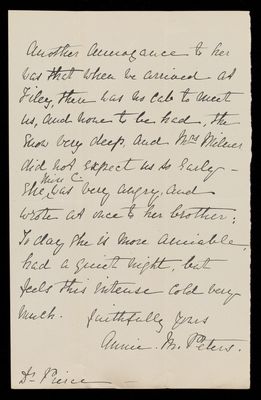 Another annoyance to her
was that when we arrived at
Filey, there was no cab to meet
us, and none to be had, the
snow very deep, and Mrs Milner
did not expect us so early -
Miss C
She, was very angry, and
wrote at once to her brother;
Today she is more amiable,
had a quiet night, but
feels this intense cold very
much. Faithfully Yrs
Annie. M. Peters.
Dr Peirce